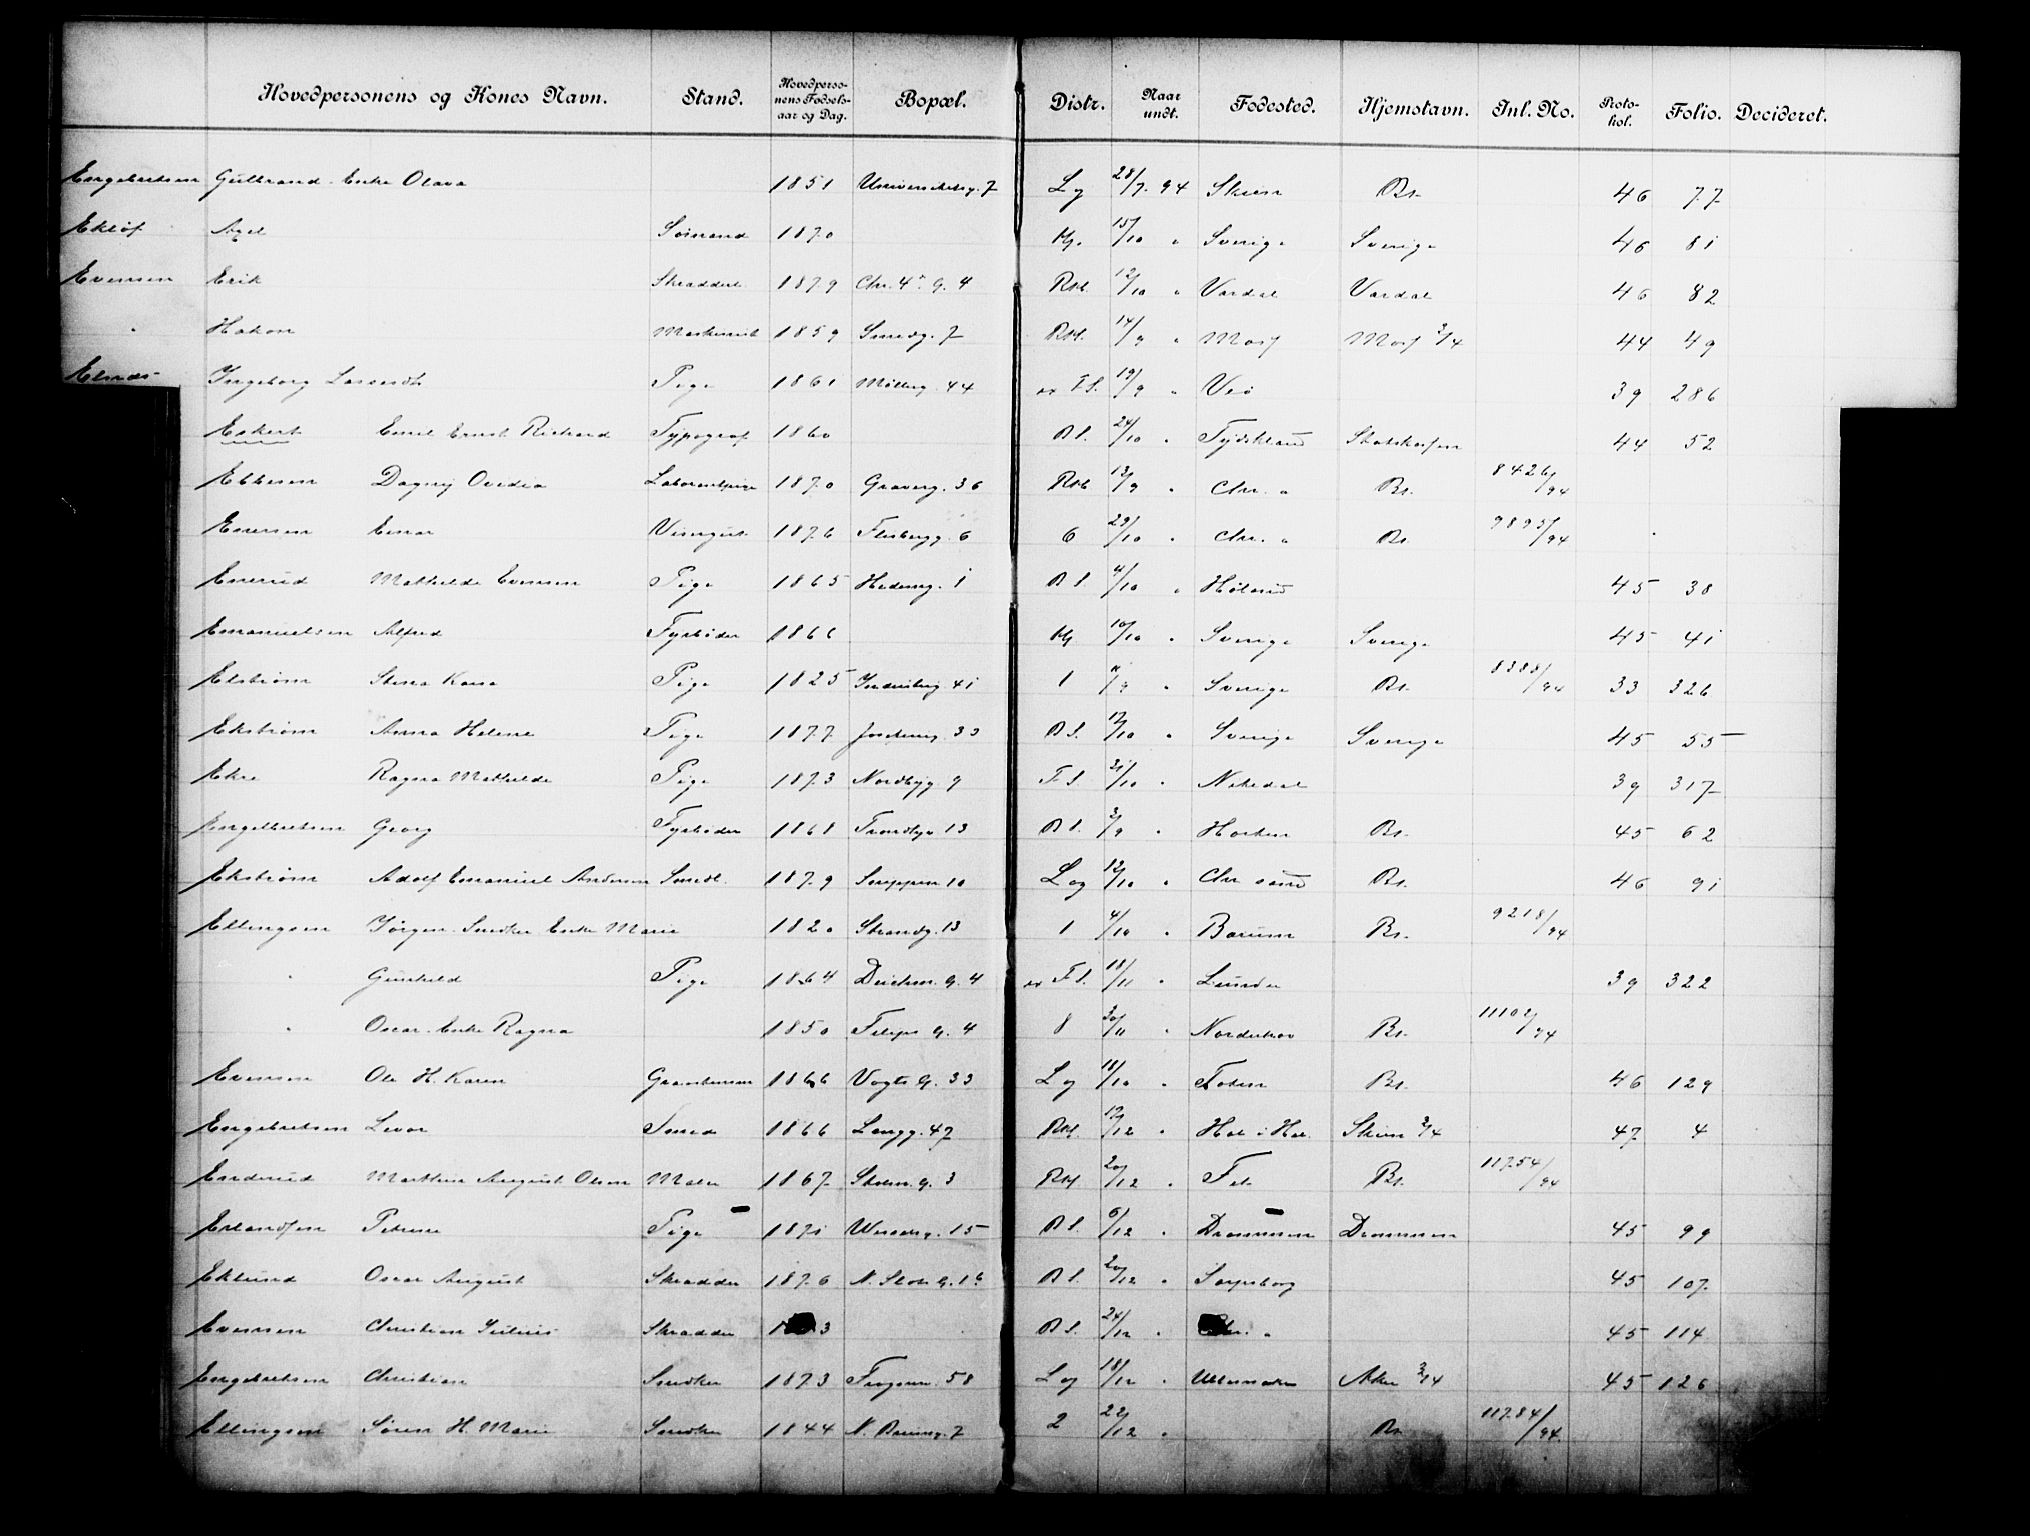 Hovedpersonens og Kones Navn. Stand. Hovedperso-nens Fødsels-aar og Dag. Bopæl. Distr. Naar undt. Fødested. Hjemstavn. Inl. No. Proto-kol. Folio. Decideret.
Engebretsen Gulbrand Enke Olava 1851 Universitetsg. 7 Lg 28/7 94 Skien Bt. 46 77
Ekløf Axel Sømand 1870 Kj. 15/10 " Sverige Sverige 46 81
Evensen Erik Skrædderl. 1879 Chr. 4. g. 4 Rkl. 12/10 " Vardal Vardal 46 82
" Hakon Maskinist 1859 Smedg. 7 Rkl. 14/9 " Moss Moss 3/4 44 49
Ingeborg Larsesdt. Pige 1861 Mølleg. 44 FS. 19/9 " Veø 39 286
Eckert Emil Ernst Richard Typograf 1860 BS. 24/10 " Tydskland 44 52
Ebbesen Dagny Ovedia 1870 Graverg. 36 Rkl 13/9 " Chr. a Bt. 8426/94
Einersen Einar Visergut 1876 Flisbergg. 6 6 29/10 " Chr. a Bt. 9895/94
Enerud Mathilde Evensen Pige 1865 Hedemg. 1 BS. 4/10 " Høland 45 38
Emanuelsen Alfred Fyrbøder 1866 Kj. 10/10 " Sverige Sverige 45 41
Elstrøm Stina Kasa Pige 1825 41 1 11/9 " Sverige Bt. 8388/94 33 326
Ekstrøm Anna Helene Pige 1877 33 BS. 17/10 " Sverige Sverige 45 55
Ekre Ragna Mathilde Pige 1873 Nordbyg 9 FS. 31/10 " Nitedal 39 317
Engelbretsen Georg Fyrbøder 1868 Trondhjv 13 BS. 3/9 " Horten Bt. 45 62
Ekstrøm Adolf Emanuel Andersen Smedl. 1879 Snippen 10 Lg 12/10 " Chr sand Bt. 46 91
Ellingsen Jørgen Snedker Enke Marie 1820 Strandg. 13 1 4/10 " Bærum Bt. 9218/94
" Gunhild Pige 1864 Deichm. g. 4 FS. 18/11 " Lunder 39 322
" Oscar Enke Ragna 1850 Filips g. 4 8 30/11 " Norderhov Bt. 11102/94
Evensen Ole H. Karen 1866 Vogts g. 33 Lg 18/10 " Toten Bt. 46 129
Engebretsen Levor Smed 1866 Langg. 47 Rkl. 19/12 " Hol i Hal. Skien 3/4 47 4
Enderud Matthias August Olsen Maler 1867 Stolm. g. 3 Rkl 20/12 " Fet Bt. 11754/94
Erlandsen Petrine Pige 1871 15 BS. 6/12 " Drammen Drammen 45 99
Eklund Oscar August Skrædder 1876 N. Slots g. 16 BS. 20/12 " Sarpsborg 45 107
Evensen Christian Julius Skrædder BS. 24/12 " Chr. a 45 114
Engebretsen Christian Snedker 1873 Frognerv. 58 Lg 18/12 " Ullensaker Aker 3/4 45 126
Ellingsen Søren H. Marie Snedker 1844 N. Bærumg. 7 2 22/12 " Bt. 11784/94